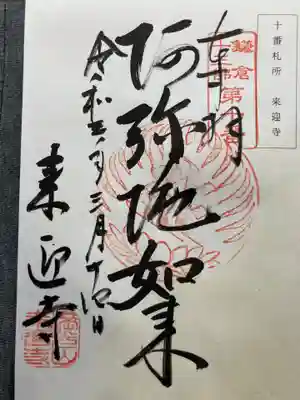 十番札所 来迎寺
奉拝
阿弥陀如来
令和五年三月十四日
来迎寺